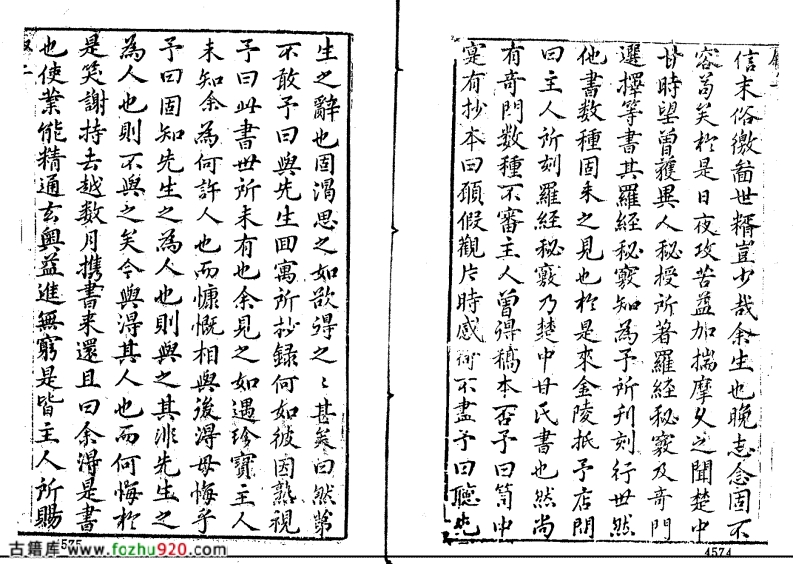 信末俗徼世糈豈少哉余生也晚志念固不
容苟矣於是日夜攻苦益加揣摩久之聞楚中
甘時望曾獲異人秘授所著羅經秘竅及奇門
選擇等書其羅經秘竅知為予所刊刻行世然
他書数種固未之見也於是來金陵抵予店問
曰主人所刻羅經秘竅乃楚中甘氏書也然尚
有奇門数種不審主人曾得稿本否予曰笥中
寔有抄本曰願假觀片時感不盡予曰聽先
4574
生之辭也固渴思之如欲得之〻甚矣曰然第
不敢予曰與先生回寓所抄録何如彼因熟視
予曰此書世所未有也余見之如遇珍寶主人
未知余為何許人也而慷慨相與後得毋悔乎
予曰固知先生之為人也則與之其非先生之
為人也則不與之矣今與得其人也而何悔於
是笑謝持去越数月携書来還且曰余得是書
也使業能精通玄奥益進無窮是皆主人所賜
4575
古籍库_www.fozhu920.com